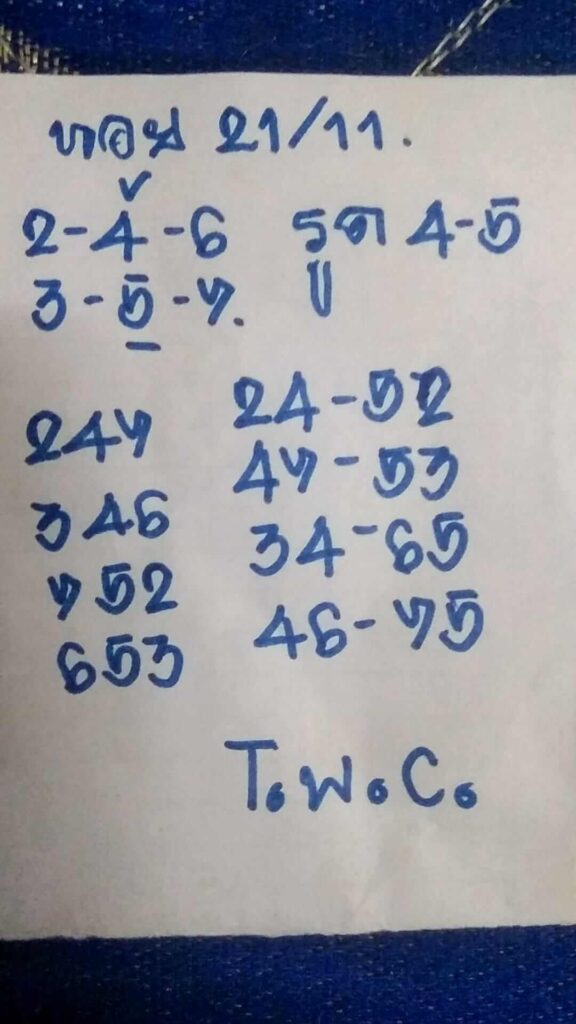 หอย 21/11.
2-4-6 รูด 4-5
3-5-7.
247
346
752
653
24-52
47-53
34-65
46-75
T.W.C.